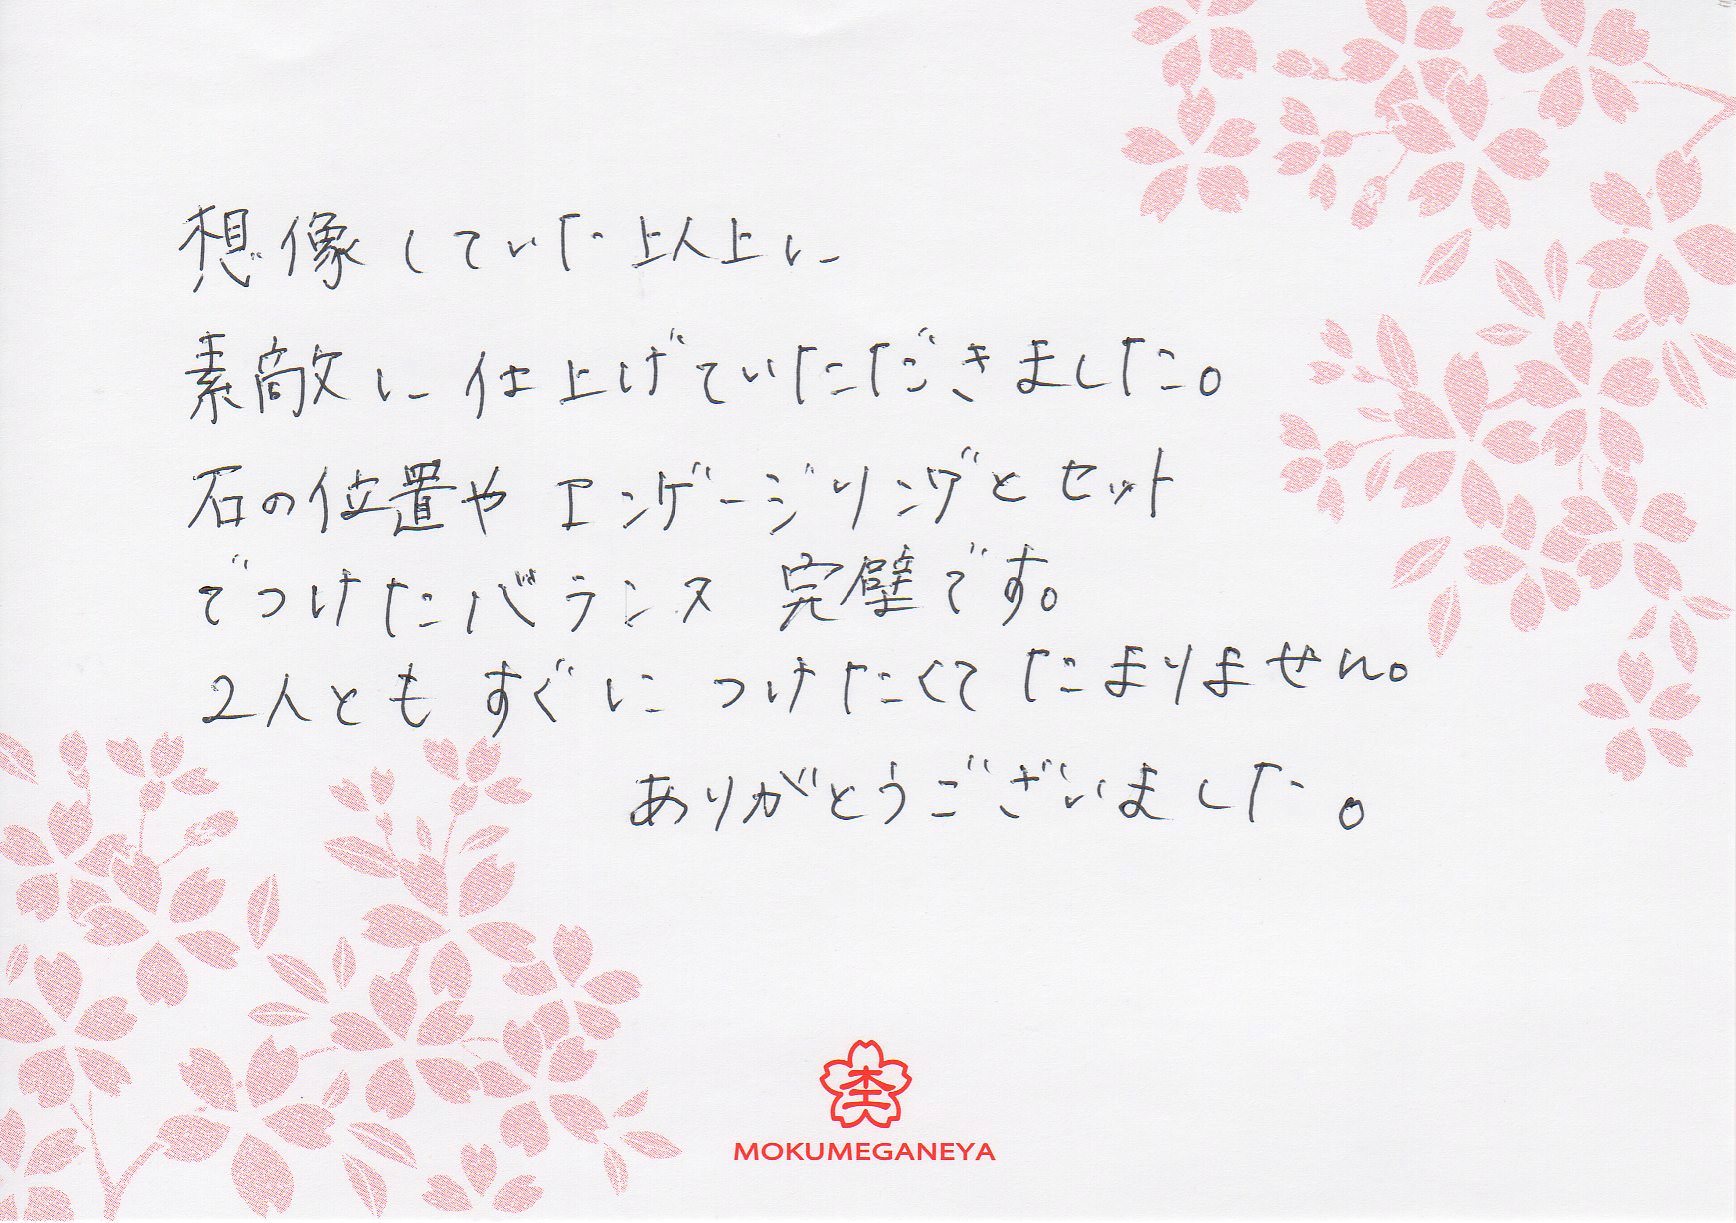 想像していた以上に
素敵に仕上げていただきました。
石の位置やエンゲージリングとセット
でつけたバランス完璧です。
2人ともすぐにつけたくてたまりません。
ありがとうございました。
MOKUMEGANEYA